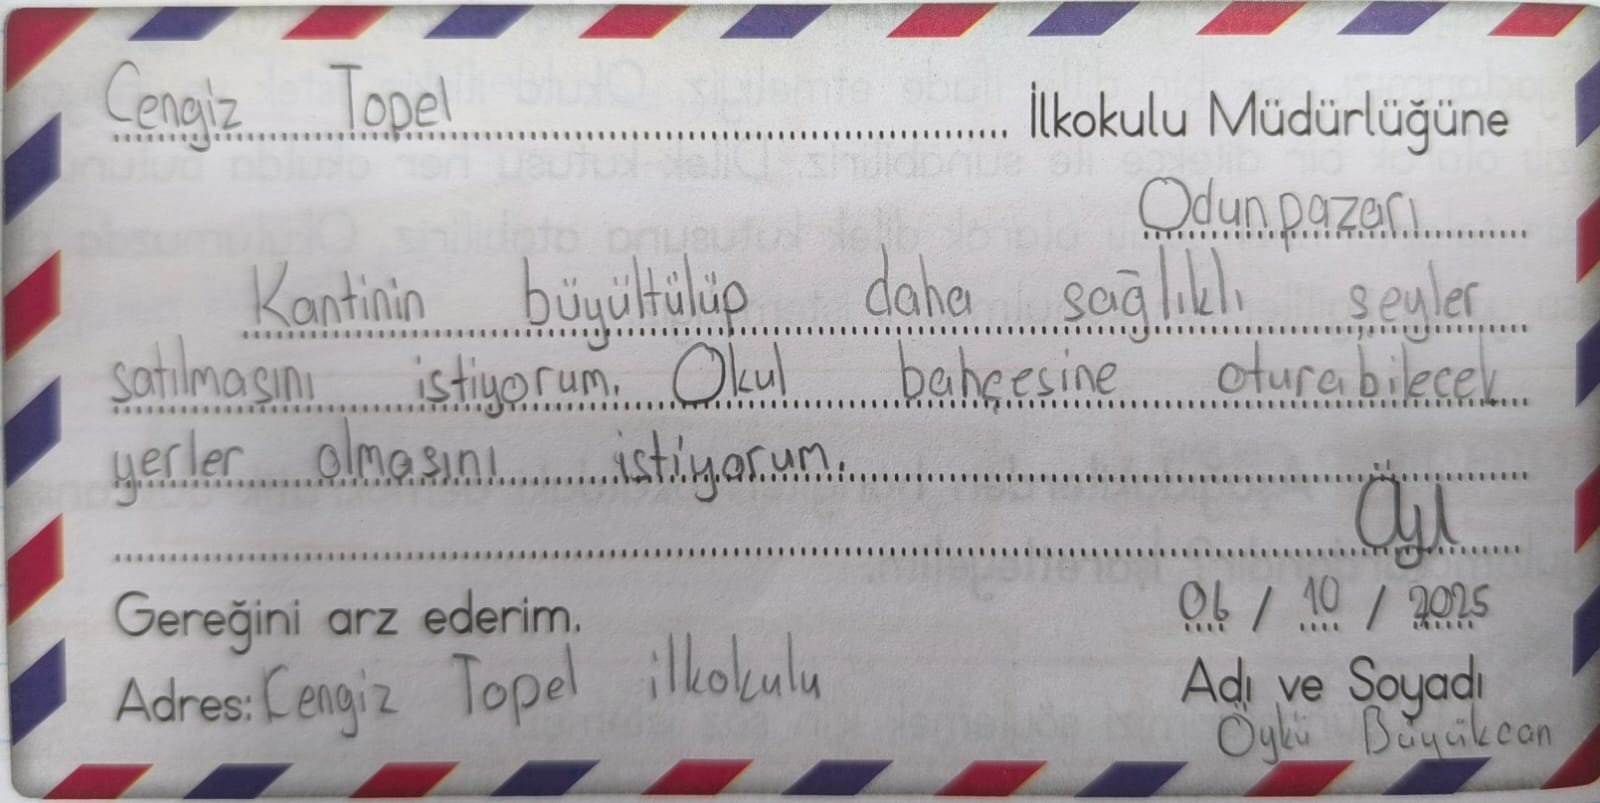 Cengiz Topel İlkokulu Müdürlüğüne
Odunpazarı
Kantinin büyültülüp daha sağlıklı şeyler
satılmasını istiyorum. Okul bahçesine oturabilecek
yerler olmasını istiyorum.
Gereğini arz ederim.
06 / 10 / 2025
Adres: Cengiz Topel ilkokulu
Adı ve Soyadı
Öykü Büyükcan